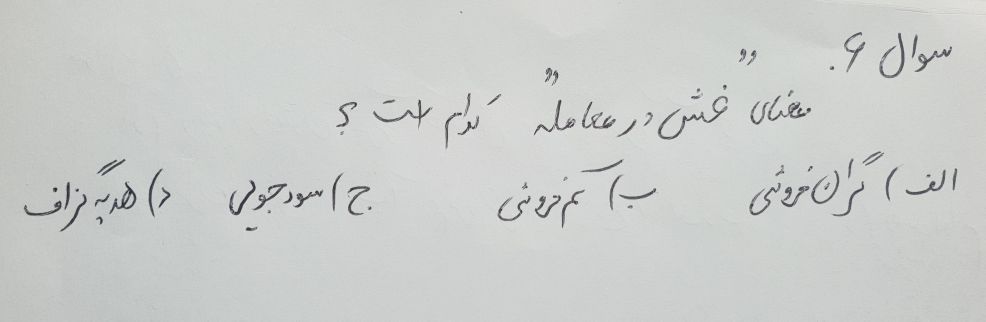 سوال ۶.
معنای "غش در معامله" کدام است ؟
الف) گران فروشی ب) کم فروشی ج) سودجویی د) هدیه گزاف